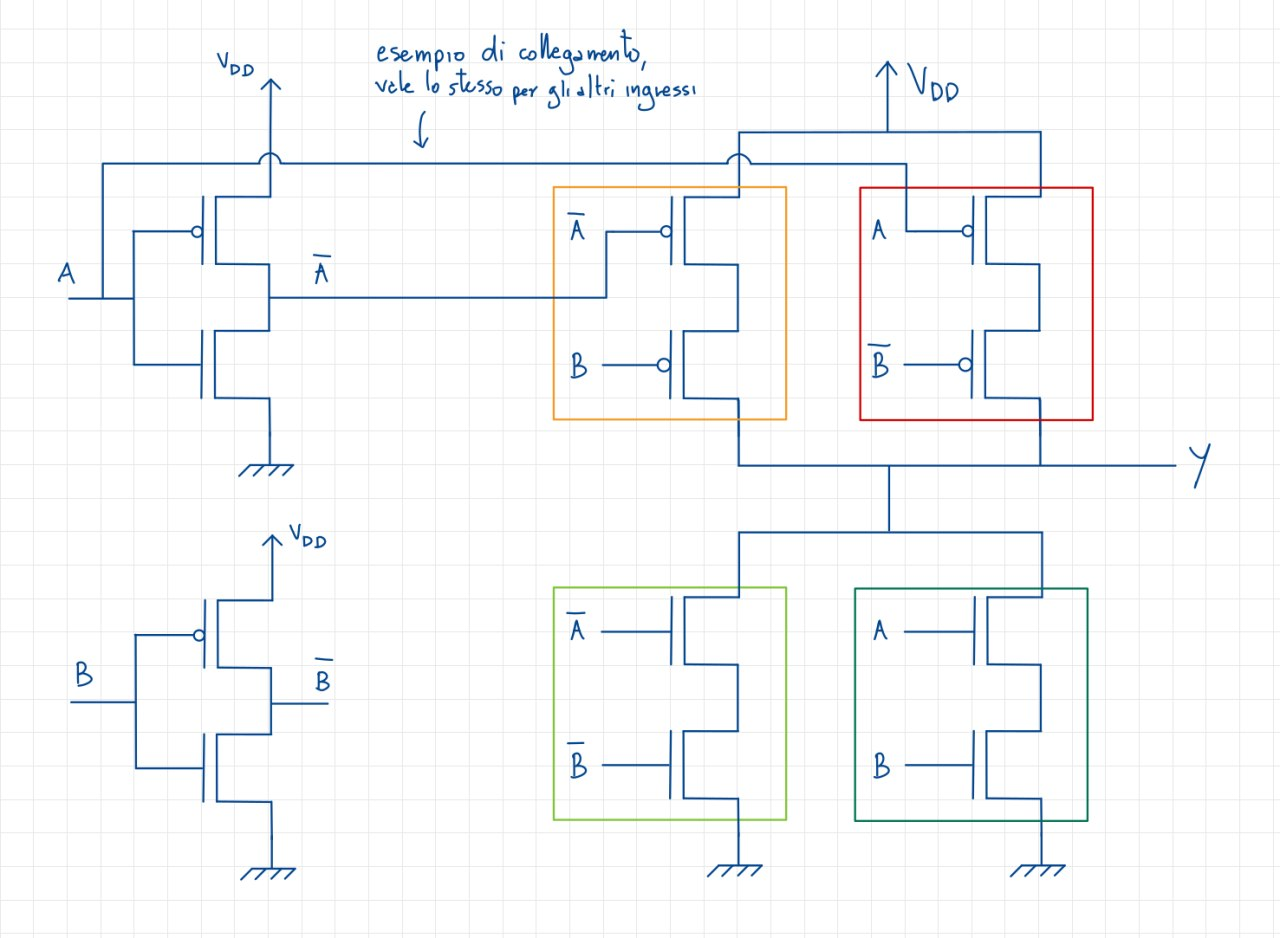 esempio di collegamento,
vale lo stesso per gli altri ingressi
V_DD
V_DD
A
A̅
A̅
B
A
B̅
Y
V_DD
B
B̅
A̅
B̅
A
B